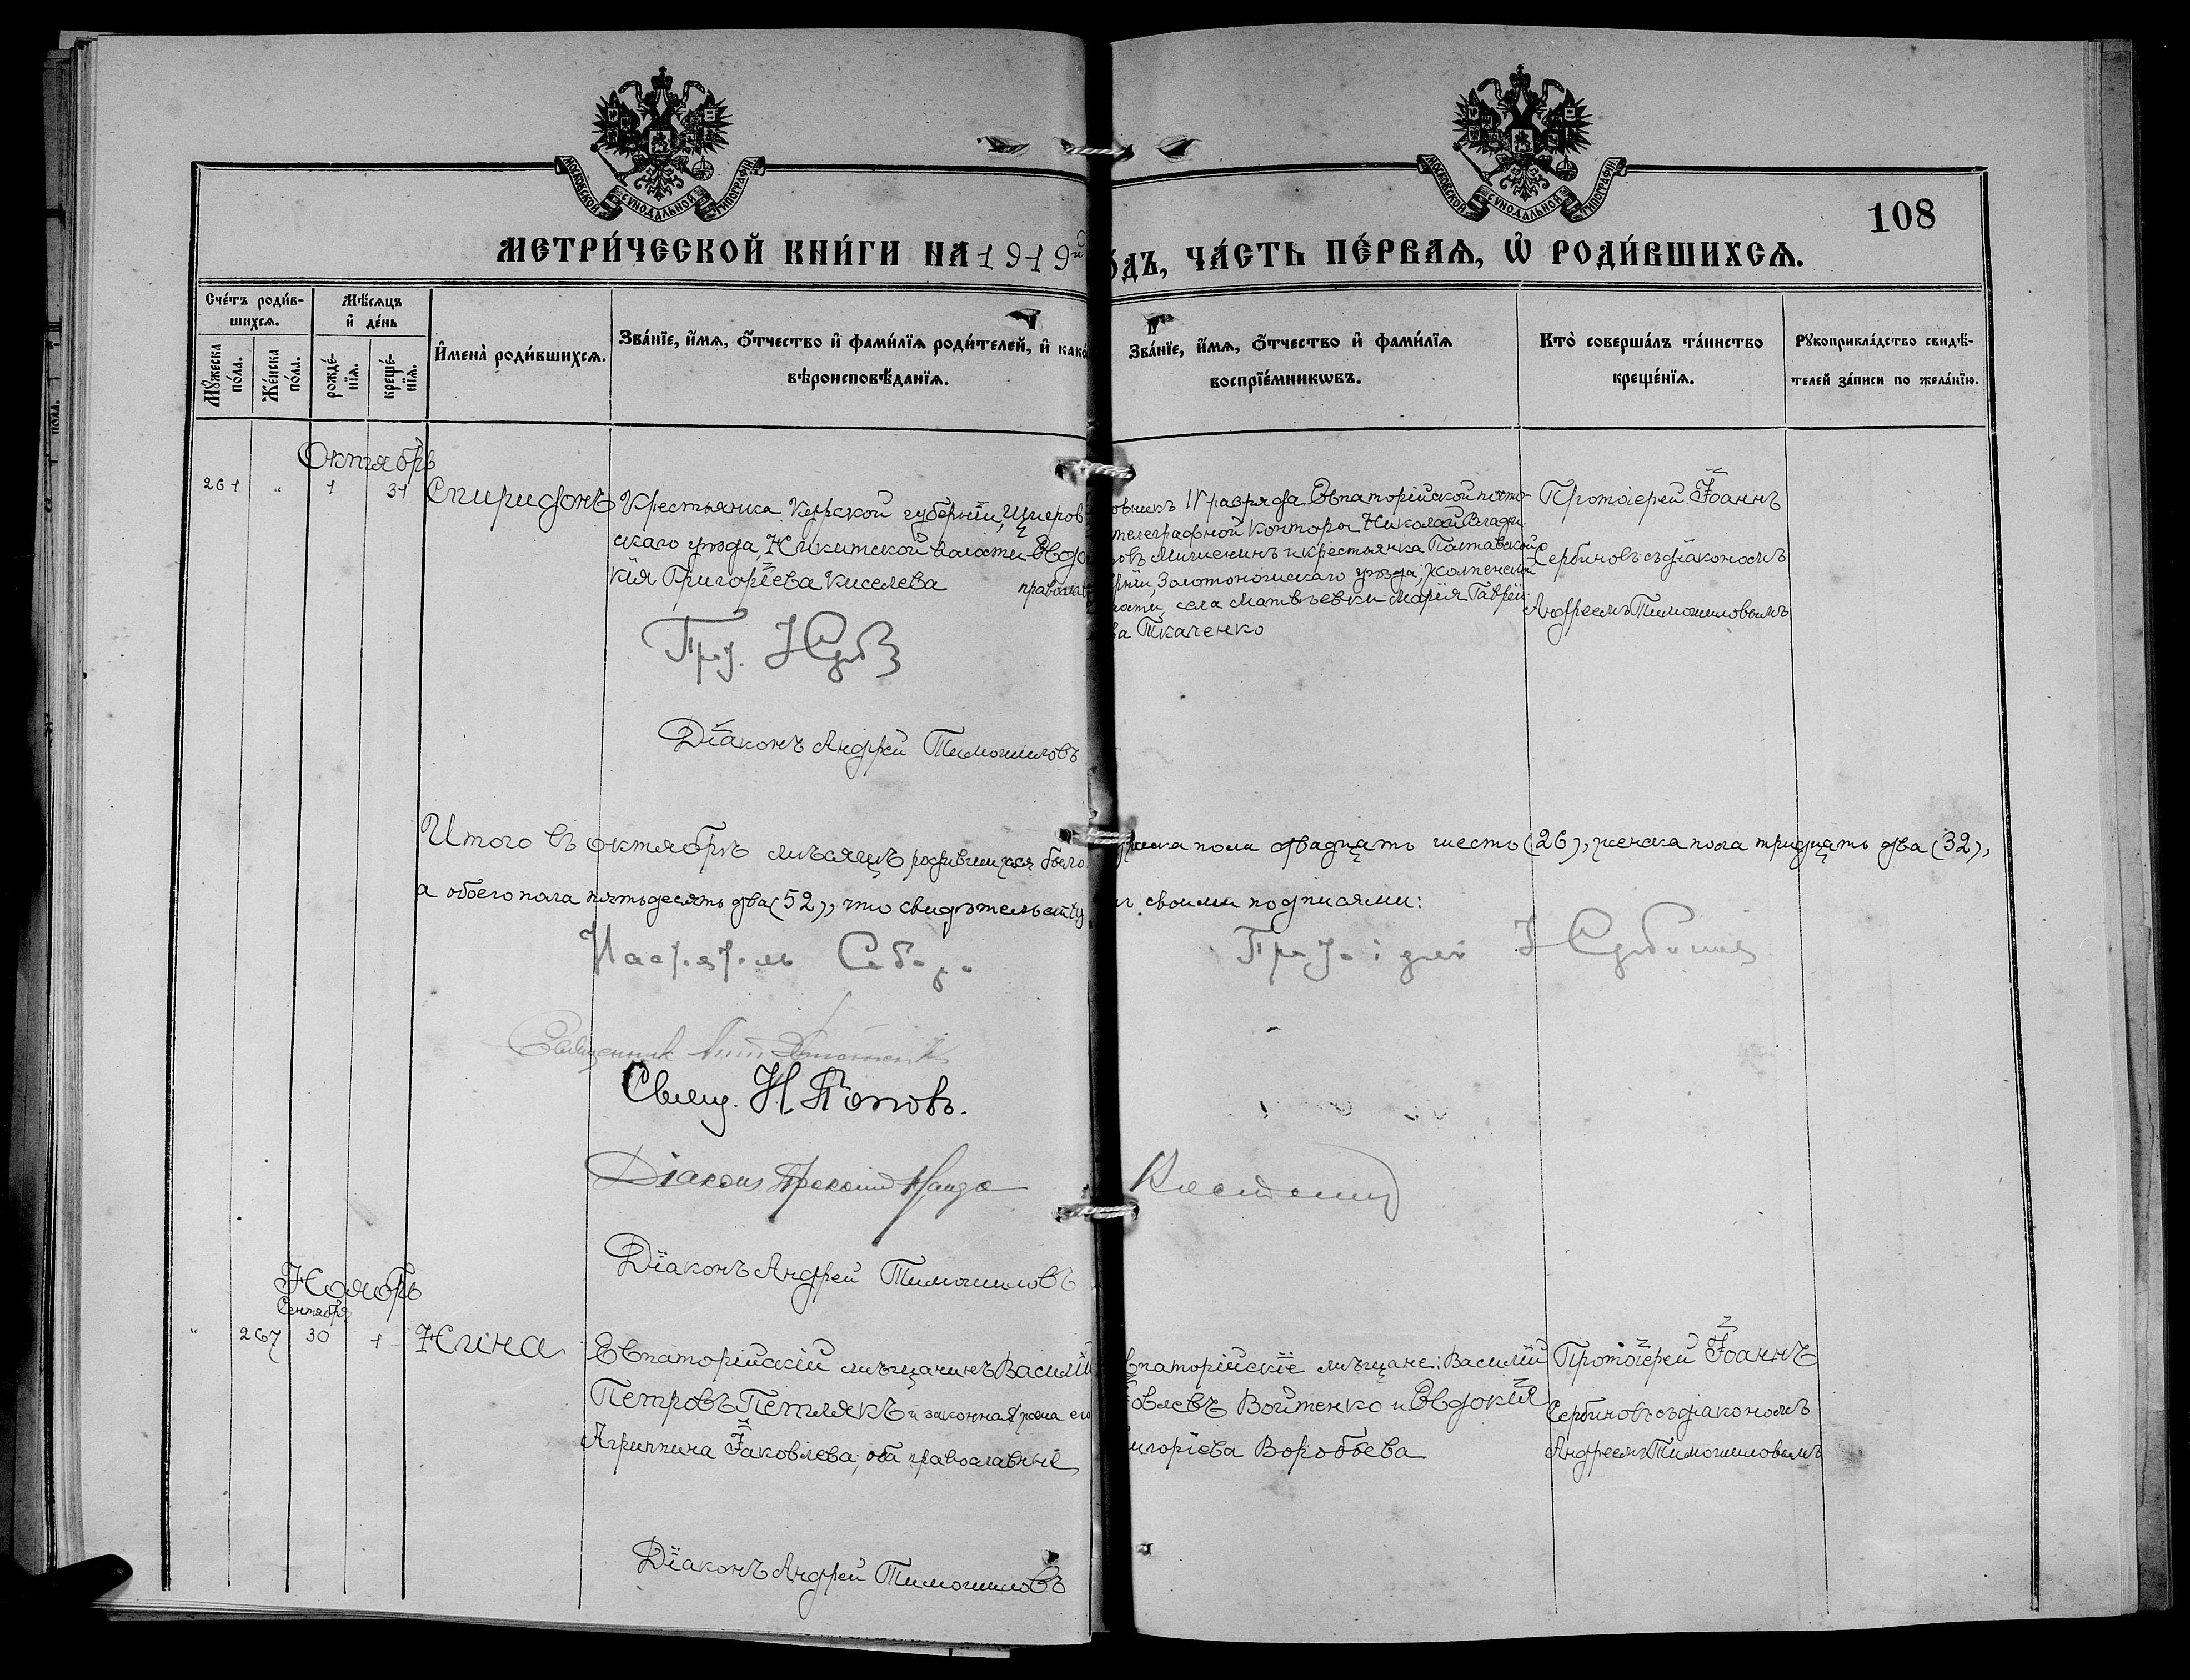 МОСКОВСКОЙ СУНОДАЛЬНОЙ ТИПОГРАФІИ
МОСКОВСКОЙ СУНОДАЛЬНОЙ ТИПОГРАФІИ
108
МЕТРИ́ЧЕСКОЙ КНИ́ГИ НА 1919й
о́дъ, ЧА́СТЬ ПЕ́РВАѦ, Ѡ҆ РОДИ́ВШИХСѦ.
Счéтъ роди́в-
шихсѧ.
Мꙋжеска по́ла.
Же́нска по́ла.
Мѣ́сѧцъ
и҆ де́нь
рожде́-
нїѧ.
креще́-
нїѧ.
И҆мена̀ роди́вшихсѧ.
Зва́нїе, и҆́мѧ, ѻ҆́тчество и҆ фами́лїѧ роди́телей, и҆ како́
вѣроисповѣ́данїѧ.
Зва́нїе, и҆́мѧ, ѻ҆́тчество и҆ фами́лїѧ
воспрїе́мникѡвъ.
Кто̀ соверша́лъ та́инство
креще́нїѧ.
Рꙋкоприкла́дство свидѣ́-
телей за́писи по жела́нїю.
Октябрь
261 " 1 31 Спиридонъ
Крестьянка Курской губерніи, Щигров
скаго уѣзда, Никитской волости Евдо
кія Григоріева Киселева православ
овникъ IV разряда Евпаторійской почто-
телеграфной конторы Николай Влади
ровъ Мишенинъ и крестьянка Полтавской
рніи, Золотоношскаго уѣзда,
лости, села Матвѣевки Марія Гавріи
ва Ткаченко
Протоіерей Іоаннъ
Сербиновъ съ діакономъ
Андреемъ Тимошиловымъ
Діаконъ Андрей Тимошиловъ
Итого въ октябрѣ мѣсяцѣ родившихся было
жеска пола двадцать шесть (26), женска пола тридцать два (32),
а обоего пола пятьдесятъ два (52), что свидѣтельству
мъ своими подписями:
Настоятель Собора
Протоіерей І Сербиновъ
Священникъ
Свящ. Н. Поповъ.
Діаконъ
Діаконъ Андрей Тимошиловъ
Ноябрь
Сентября
" 267 30 1 Нина
Евпаторійскій мѣщанинъ Василій
Петровъ Петлякъ и законная жена его
Агриппина Іаковлева, оба православные
впаторійскіе мѣщане: Василій
ковлевъ Войтенко и Евдокія
игоріева Воробьева
Протоіерей Іоаннъ
Сербиновъ съ діакономъ
Андреемъ Тимошиловымъ
Діаконъ Андрей Тимошиловъ